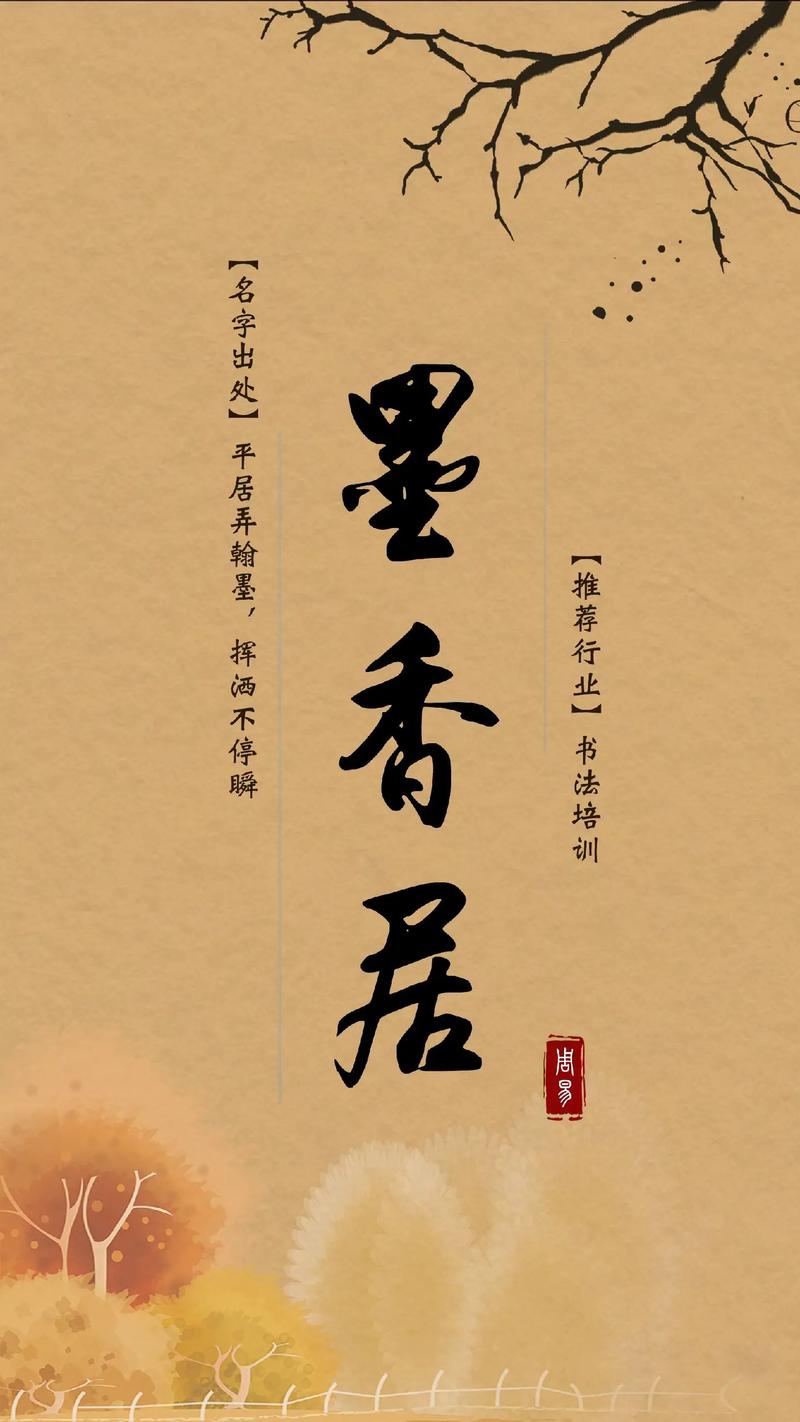 墨香居
【推荐行业】书法培训
【名字出处】平居弄翰墨，挥洒不停瞬
周易